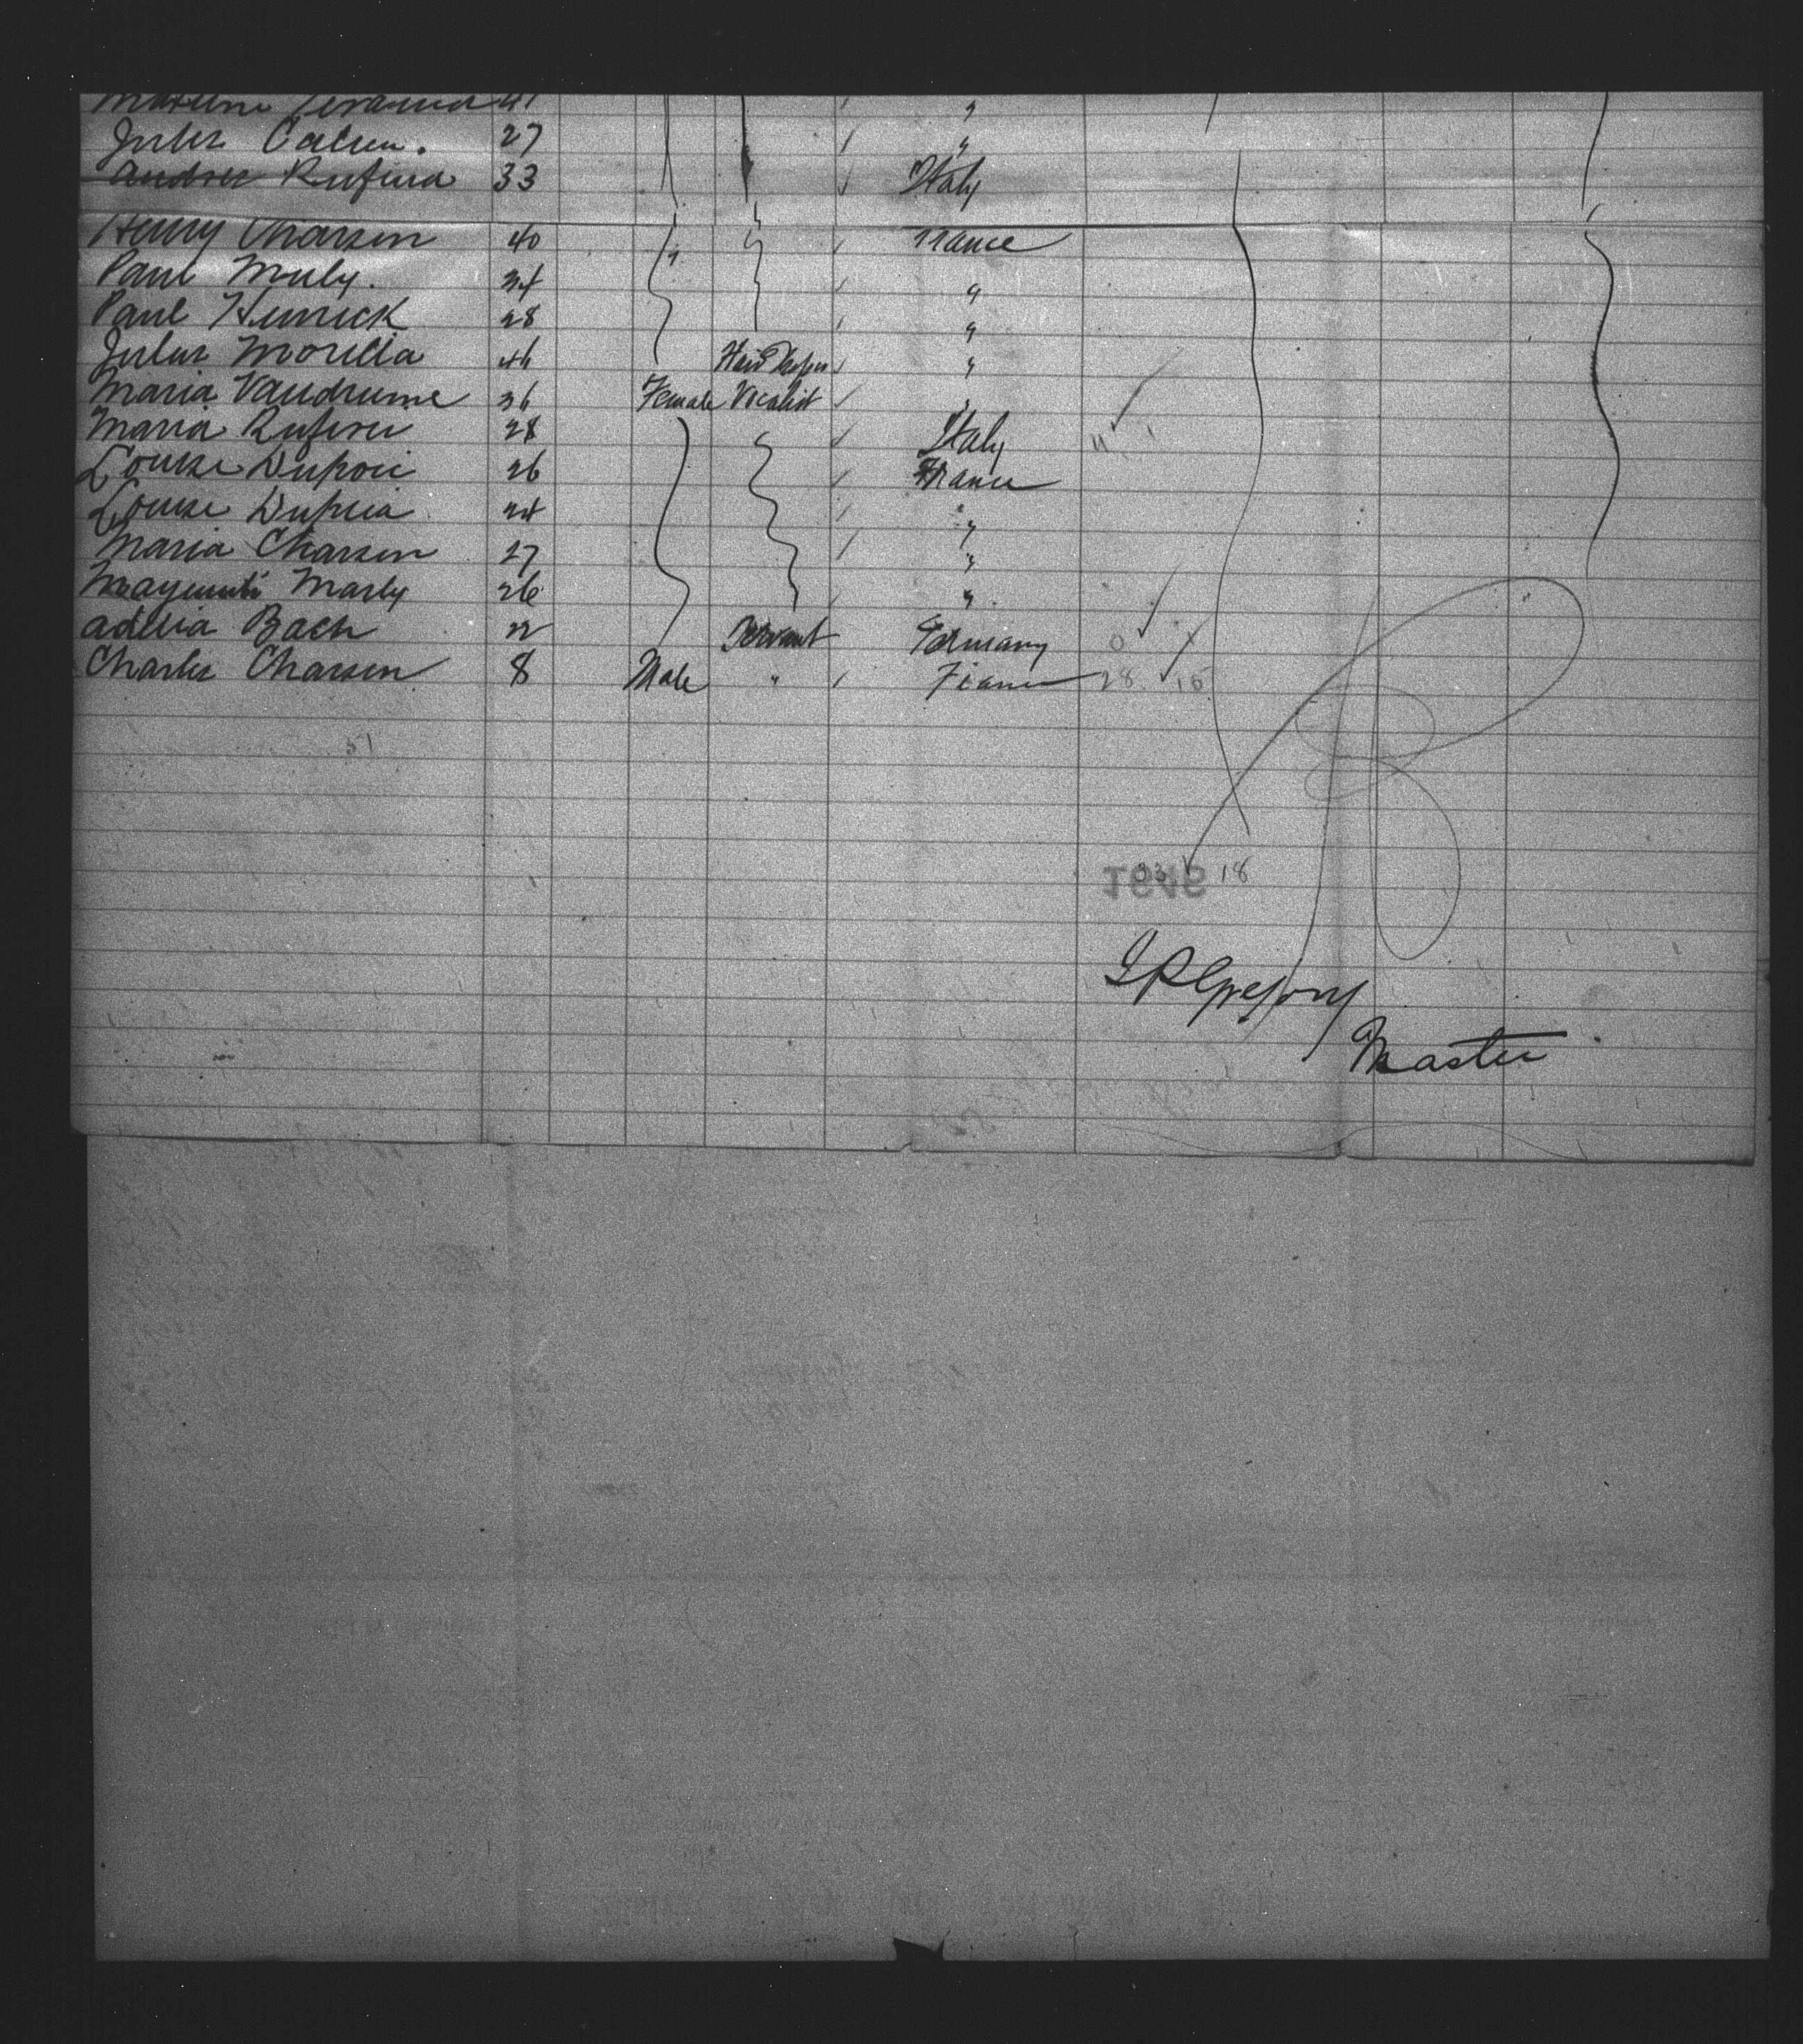 41 "
Jules Calun. 27 "
Andrer Rufina 33 Italy
Henry Charsen 40 " France
Paul Muly. 34 "
Paul Henrick 28 "
Jules Morella 46 Hair "
Maria Vandrume 36 Female Vocalist "
Maria Rufirer 28 Italy
Louise Dupoic 26 France
Louise Dupria 24 "
Maria Charsen 27 "
Marly 26 "
Adelia Bach 22 Servant Germany 0
Charles Charsen 8 Male " France 28 15
51
18
Gregory
Master